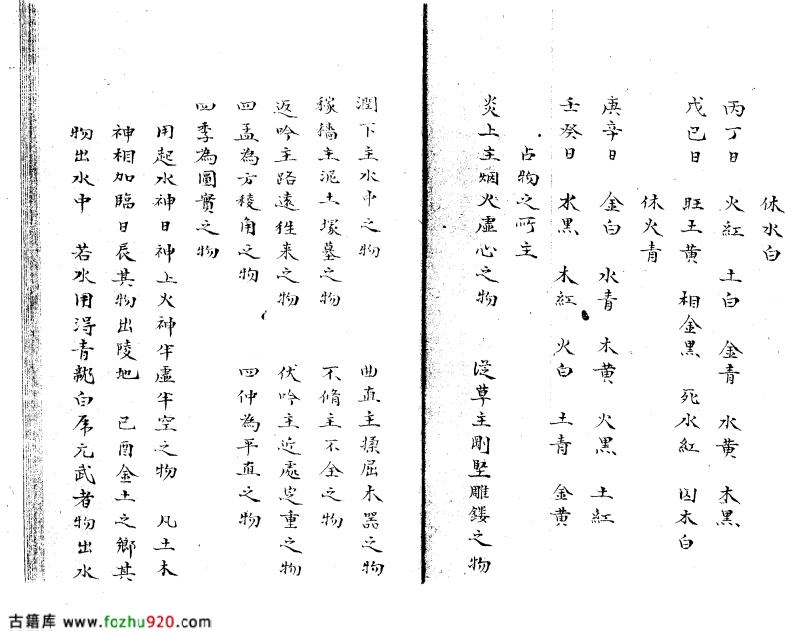 休水白
丙丁日　火紅　土白　金青　水黄　木黑
戊己日　旺土黄　相金黑　死水紅　囚木白
休火青
庚辛日　金白　水青　木黄　火黑　土紅
壬癸日　水黑　木紅　火白　土青　金黄
占物之所主
炎上主烟火虛心之物　從革主剛堅雕鏤之物
潤下主水中之物　曲直主揉屈木器之物
稼穡主泥土塚墓之物　不脩主不全之物
返吟主路遠徃来之物　伏吟主近處定重之物
四孟為方稜角之物　四仲為平直之物
四季為圓實之物
用起水神日神上火神半虛半空之物　凡土木
神相加臨日辰其物出陵地　己酉金土之鄉其
物出水中　若水用淂青龍白虎元武者物出水
古籍库 www.fozhu920.com